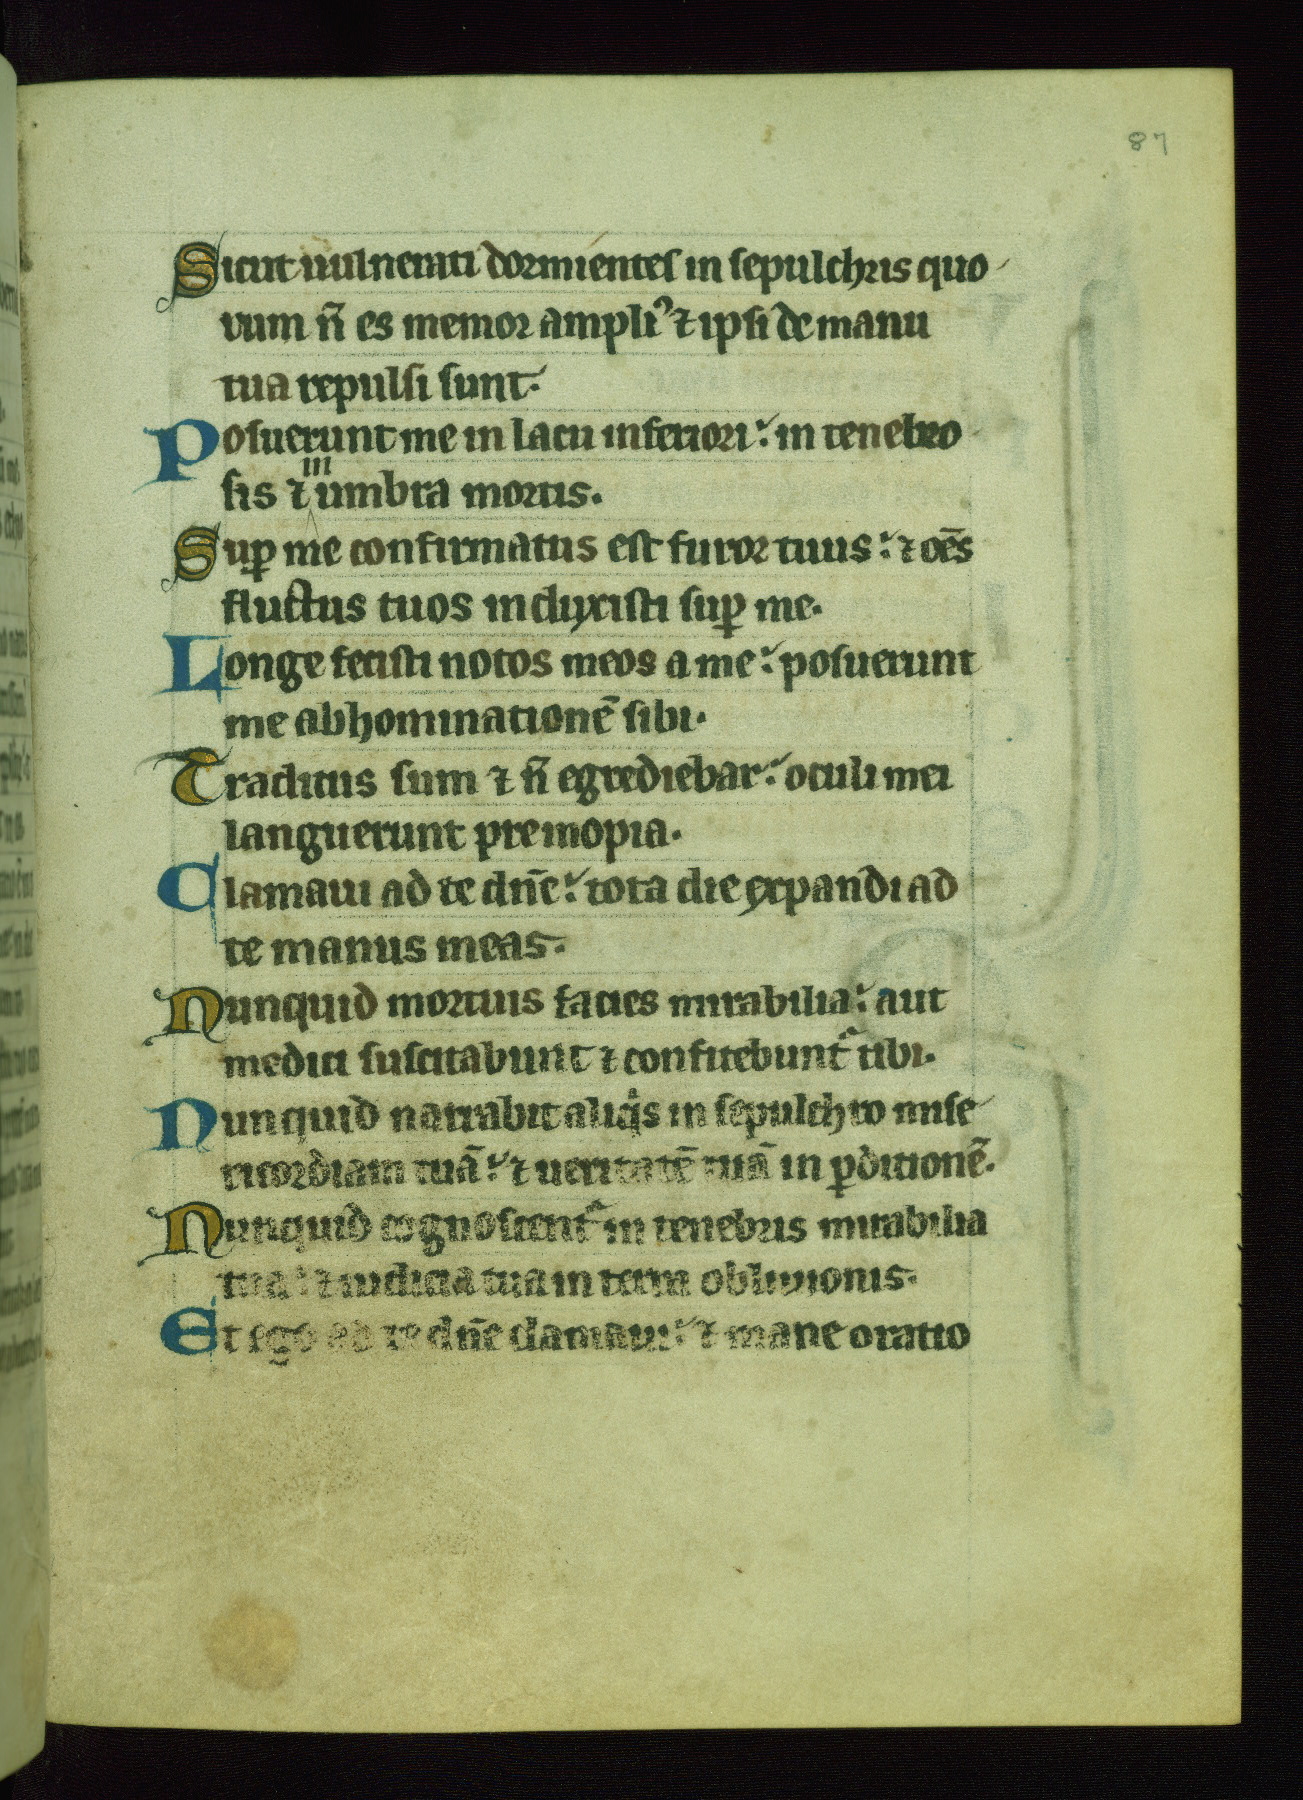 87
Sicut uulnerati dormientes in sepulchris quo
rum n̄ es memor ampliꝰ ⁊ ipsi de manu
tua repulsi sunt.
Posuerunt me in lacu inferiori: in tenebro
sis ⁊ in umbra mortis.
Suꝑ me confirmatus est furor tuus: ⁊ oēs
fluctus tuos induxisti suꝑ me.
Longe fecisti notos meos a me: posuerunt
me abhominationē sibi.
Traditus sum ⁊ n̄ egrediebar: oculi mei
languerunt pre inopia.
Clamaui ad te dn̄e: tota die expandi ad
te manus meas.
Nunquid mortuis facies mirabilia: aut
medici suscitabunt ⁊ confitebunt᷑ tibi.
Nunquid narrabit aliqis in sepulchro mise
ricordiam tuā: ⁊ ueritatē tuā in ꝑditionē.
Nunquid cognoscent᷑ in tenebris mirabilia
tua: ⁊ iudicia tua in terra obliuionis.
Et ego ad te dn̄e clamaui: ⁊ mane oratio